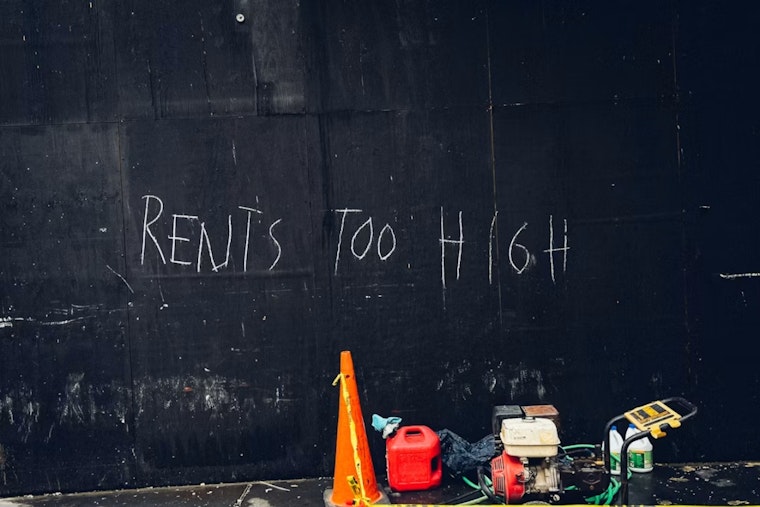 RENT'S TOO HIGH